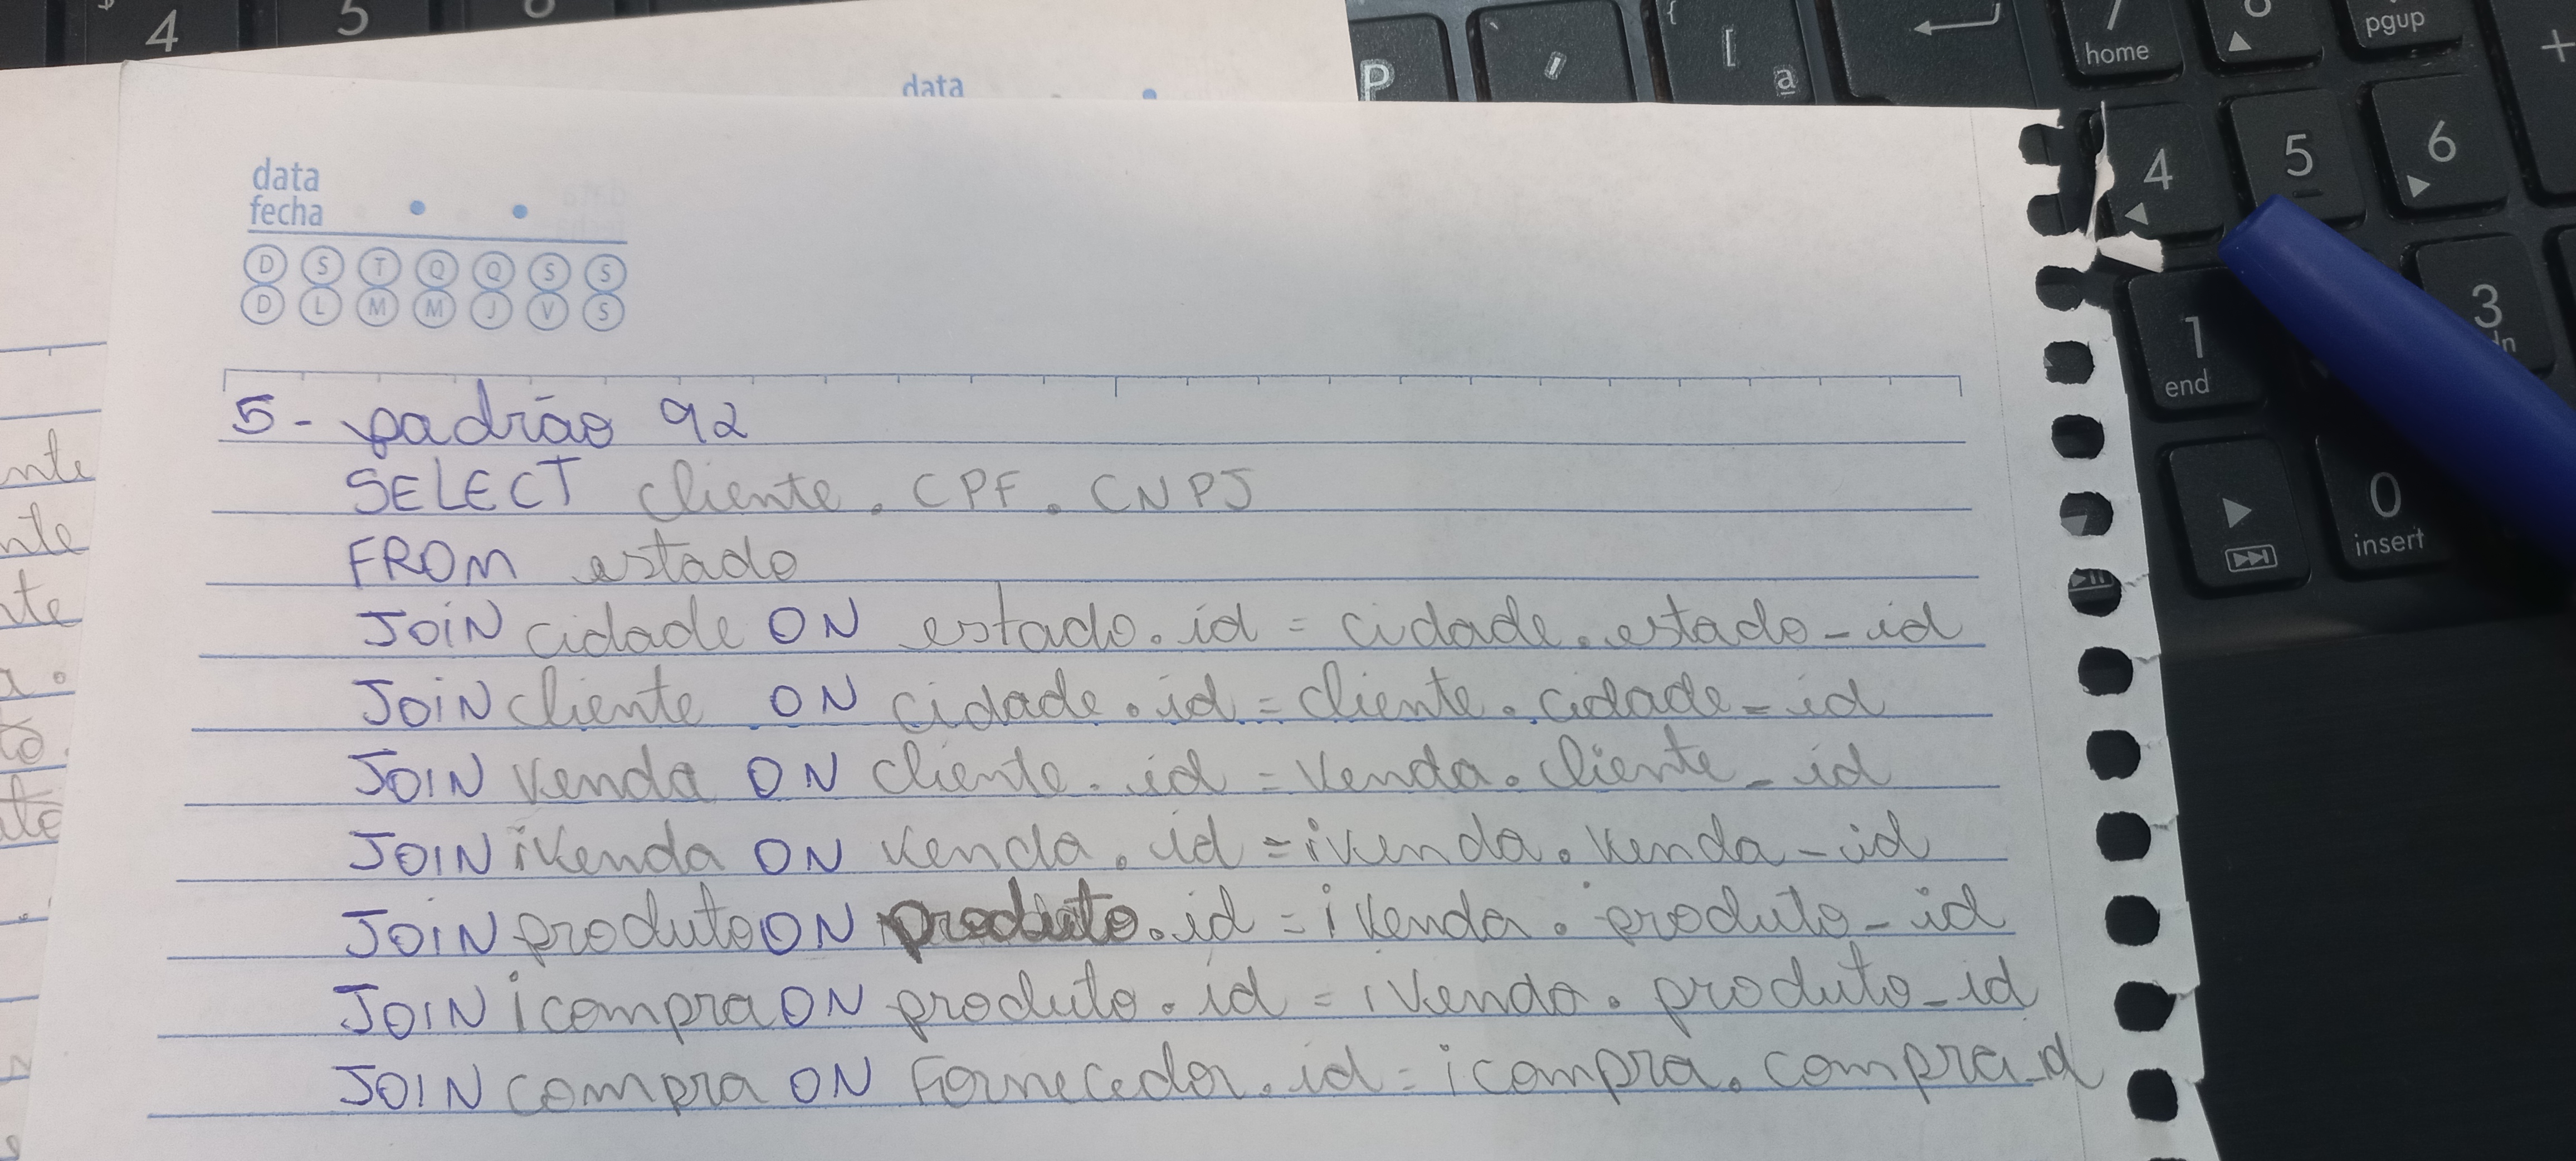 data
fecha
D S T Q Q S S
D L M M J V S
5- padrão 92
SELECT cliente.CPF.CNPJ
FROM estado
JOIN cidade ON estado.id = cidade.estado-id
JOIN cliente ON cidade.id = cliente.cidade=id
JOIN venda ON cliente.id = venda.cliente-id
JOIN ivenda ON venda.id = ivenda.venda-id
JOIN produto ON produto.id = ivenda.produto-id
JOIN icompra ON produto.id = ivenda.produto-id
JOIN compra ON fornecedor.id = icompra.compra-d
data
nte
nte
nte
4
5
P
[
ª
home
7
4
5
6
end
1
0
insert
3
pgup
+